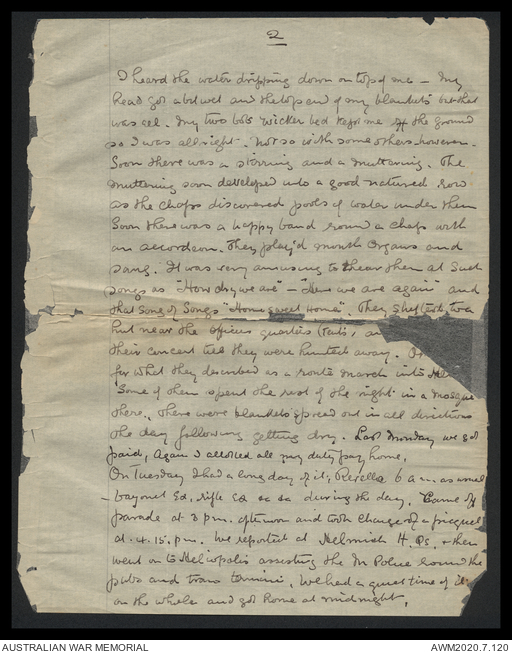 2
I heard the water dripping down on top of me - My
head got a bit wet and the top end of my blankets but that
was all. My two bob wicker bed kept me off the ground
so I was allright. Not so with some others however.
Soon there was a stirring and a muttering. The
muttering soon developed into a good natured row
as the chaps discovered pools of water under them
Soon there was a happy band round a chap with
an accordeon. They play'd mouth organs and
sang. It was very amusing to hear them at such
songs as "How dry we are" - "Here we are again" and
that song of songs "Home sweet Home". They shifted to a
hut near the officers quarters
their concert till they were hunted away.
for what they described as a route march into
Some of them spent the rest of the night in a mosque
there. There were blankets spread out in all directions
the day following getting dry. Last Monday we got
paid, again I alloted all my duty pay home.
On Tuesday I had a long day of it; Reveille 6 a.m. as usual
bayonet Ex, rifle Ex &c &c during the day. Came off
parade at 3 p.m. afternoon and took charge of a picquet
at 4.15. p.m. We reported at Helmieh H. Qs. & then
went on to Heliopolis assisting the M Police round the
pubs and tram termini. We had a quiet time of it
on the whole and got home at midnight.
AUSTRALIAN WAR MEMORIAL
AWM2020.7.120